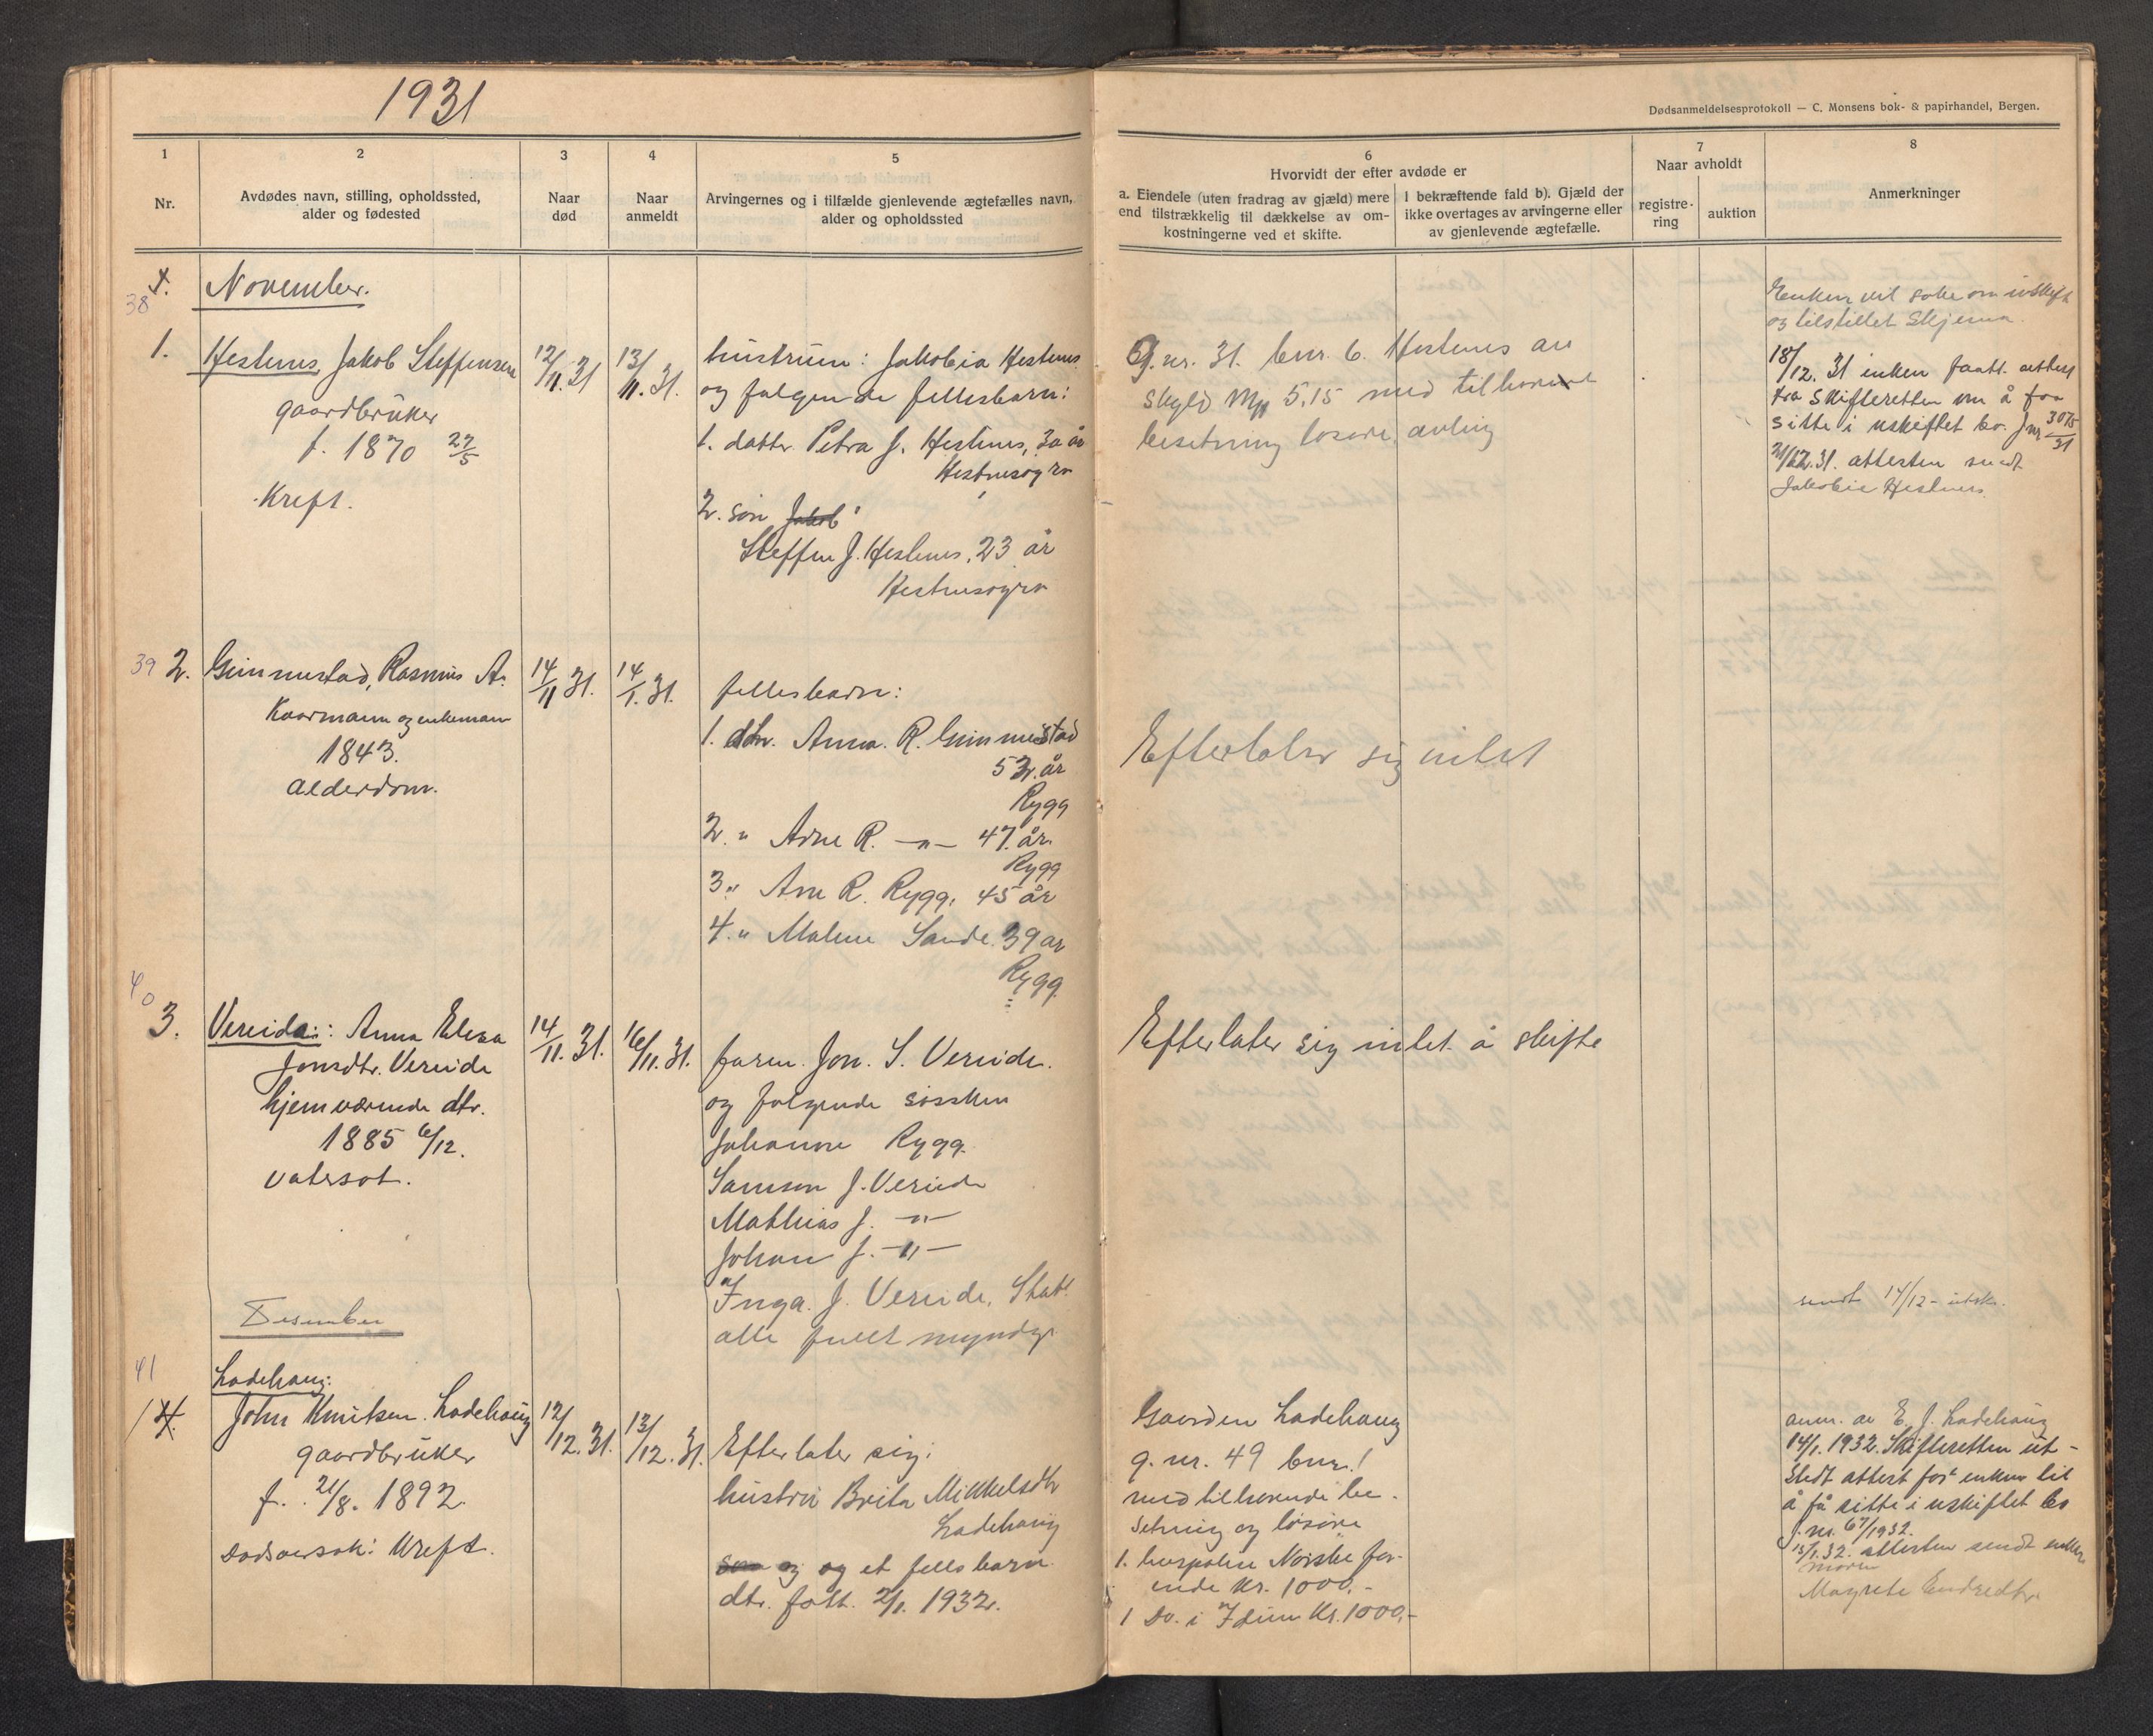 1931
Dødsanmeldelsesprotokoll — C. Monsens bok- & papirhandel, Bergen.
1
Nr.
2
Avdødes navn, stilling, opholdssted,
alder og fødested
3
Naar
død
4
Naar
anmeldt
5
Arvingernes og i tilfælde gjenlevende ægtefælles navn,
alder og opholdssted
6
Hvorvidt der efter avdøde er
a. Eiendele (uten fradrag av gjæld) mere
end tilstrækkelig til dækkelse av om-
kostningerne ved et skifte.
I bekræftende fald b). Gjæld der
ikke overtages av arvingerne eller
av gjenlevende ægtefælle.
7
Naar avholdt
registre-
ring
auktion
8
Anmerkninger
38
November.
1.
Hestenes, Jakob Steffensen
gaardbruker
f. 1870 27/5
Kreft.
12/11.31
13/11.31.
hustruen: Jakobia Hestenes
og følgende fellesbarn:
1. datter Petra J. Hestenes, 30 år
2. søn Jakob
Steffen J. Hestenes, 23 år
G.nr. 31. bnr. 6. Hestenes av
skyld Mk 5.15 med tilhørende
besetning løsøre, avling
Enken vil søke om uskift
og tilstillet Skjema.
18/12.31 enken faatt attest
fra Skifteretten om å faa
sitte i uskiftet bo. Jnr 3075/31
21/12.31. attesten sendt
Jakobie Hestenes
39
2.
Gimmestad, Rasmus A.
Kaarmann og enkemann
1843.
Alderdom.
14/11 31.
14/1.31.
fellesbarn:
1. dtr. Anna. R. Gimmestad
52 år
Rygg
2. " Arne R. —"— 47 år.
Rygg
3. " Ane R. Rygg, 45 år
4. " Malene Sande 39 år
Rygg
Efterlater sig intet
40
3.
Vereide: Anna Elena
Jonsdtr. Vereide
hjemværende dtr.
1885 6/12.
Vatersot.
14/11.31.
16/11.31.
faren. Jon. S. Vereide.
og følgende søsken
Johanne Rygg.
Samson J. Vereide
Mathias J. —"—
Johan J. —"—
Inga. J. Vereide,
alle fullt myndige
Efterlater sig intet å skifte
Desember
sendt 14/12 - utskr.
41
1
Ladehaug:
John Knutsen. Ladehaug
gaardbruker
f. 21/8. 1892
Dødsaarsak: Kreft.
12/12.31.
13/12.31.
Efterlater sig:
hustru Brita Mikkelsdtr
Ladehaug
og et fellsbarn
dtr. født. 2/1. 1932.
Gaarden Ladehaug
g. nr. 49 bnr. 1
med tilhørende be-
setning og løsøre
1. livspolise Norske for-
ende Kr. 1000.-
1 Do. i Idun Kr. 1000,-
anm. av E. J. Ladehaug
14/1. 1932. Skifteretten ut-
stedt attest for enken til
å få sitte i uskiftet bo
j. nr. 67/1932.
15/1.32. attesten sendt enken
moren
Magrete Endredtr.